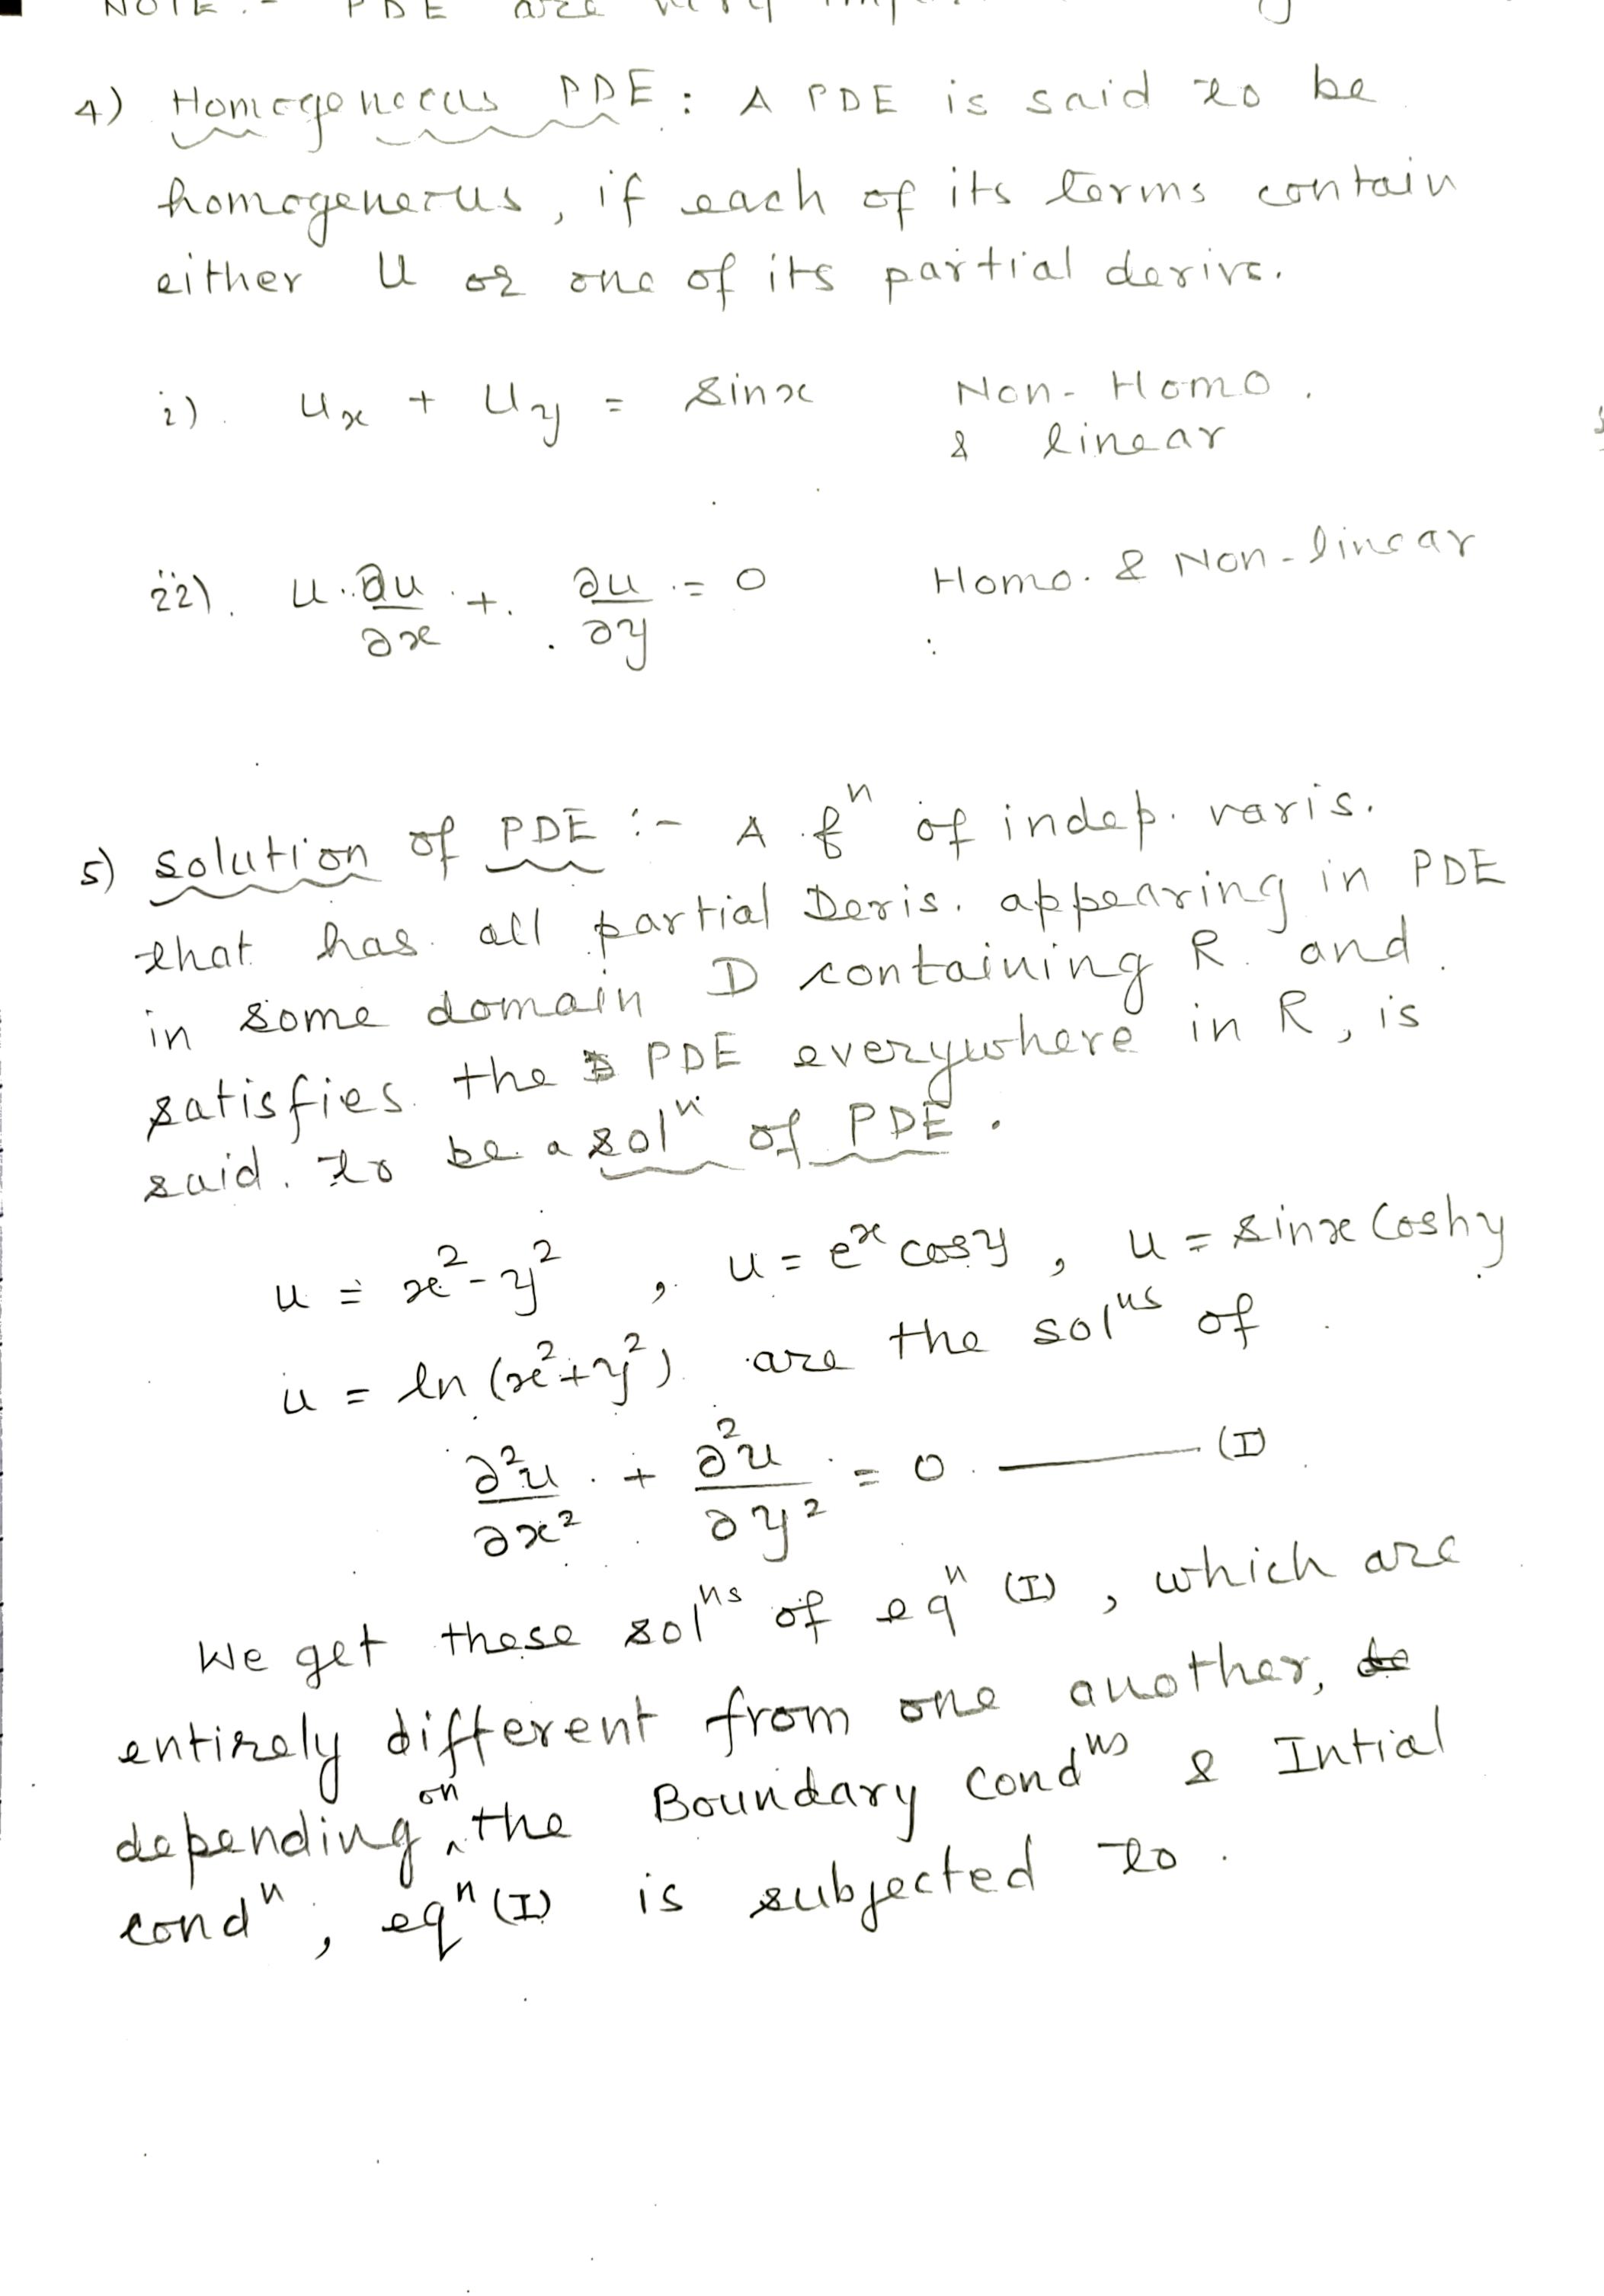 NOTE :- PDE are very
4) Homogeneous PDE : A PDE is said to be
homogeneous, if each of its terms contain
either U or one of its partial derivs.
i). Ux + Uy = sinx Non-Homo.
& linear
ii). u.∂u/∂x + ∂u/∂y = 0 Homo. & Non-linear
5) solution of PDE :- A fⁿ of indep. varis.
that has all partial Deris. appearing in PDE
in some domain D containing R and
satisfies the PDE everywhere in R, is
said to be a solⁿ of PDE.
u = x²-y² , u = eˣ cosy , u = sinx Coshy
u = ln (x²+y²) are the solⁿˢ of
∂²u/∂x² + ∂²u/∂y² = 0 ——— (I)
We get these solⁿˢ of eqⁿ (I) , which are
entirely different from one another,
depending on the Boundary Condⁿˢ & Intial
condⁿ, eqⁿ (I) is subjected to.